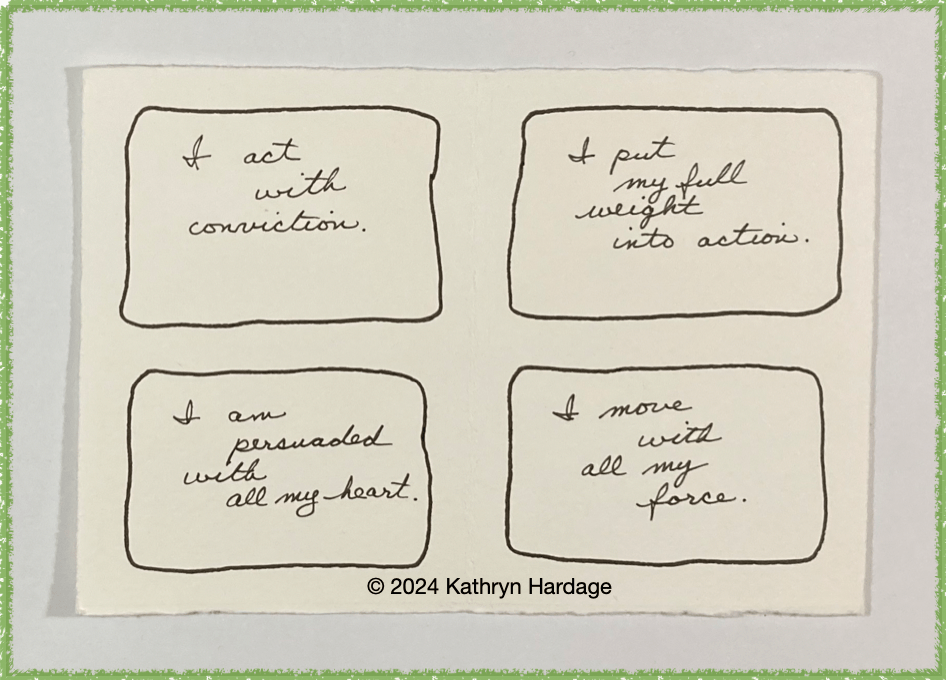 I act
with
conviction.
I put
my full
weight
into action.
I am
persuaded
with
all my heart.
I move
with
all my
force.
© 2024 Kathryn Hardage